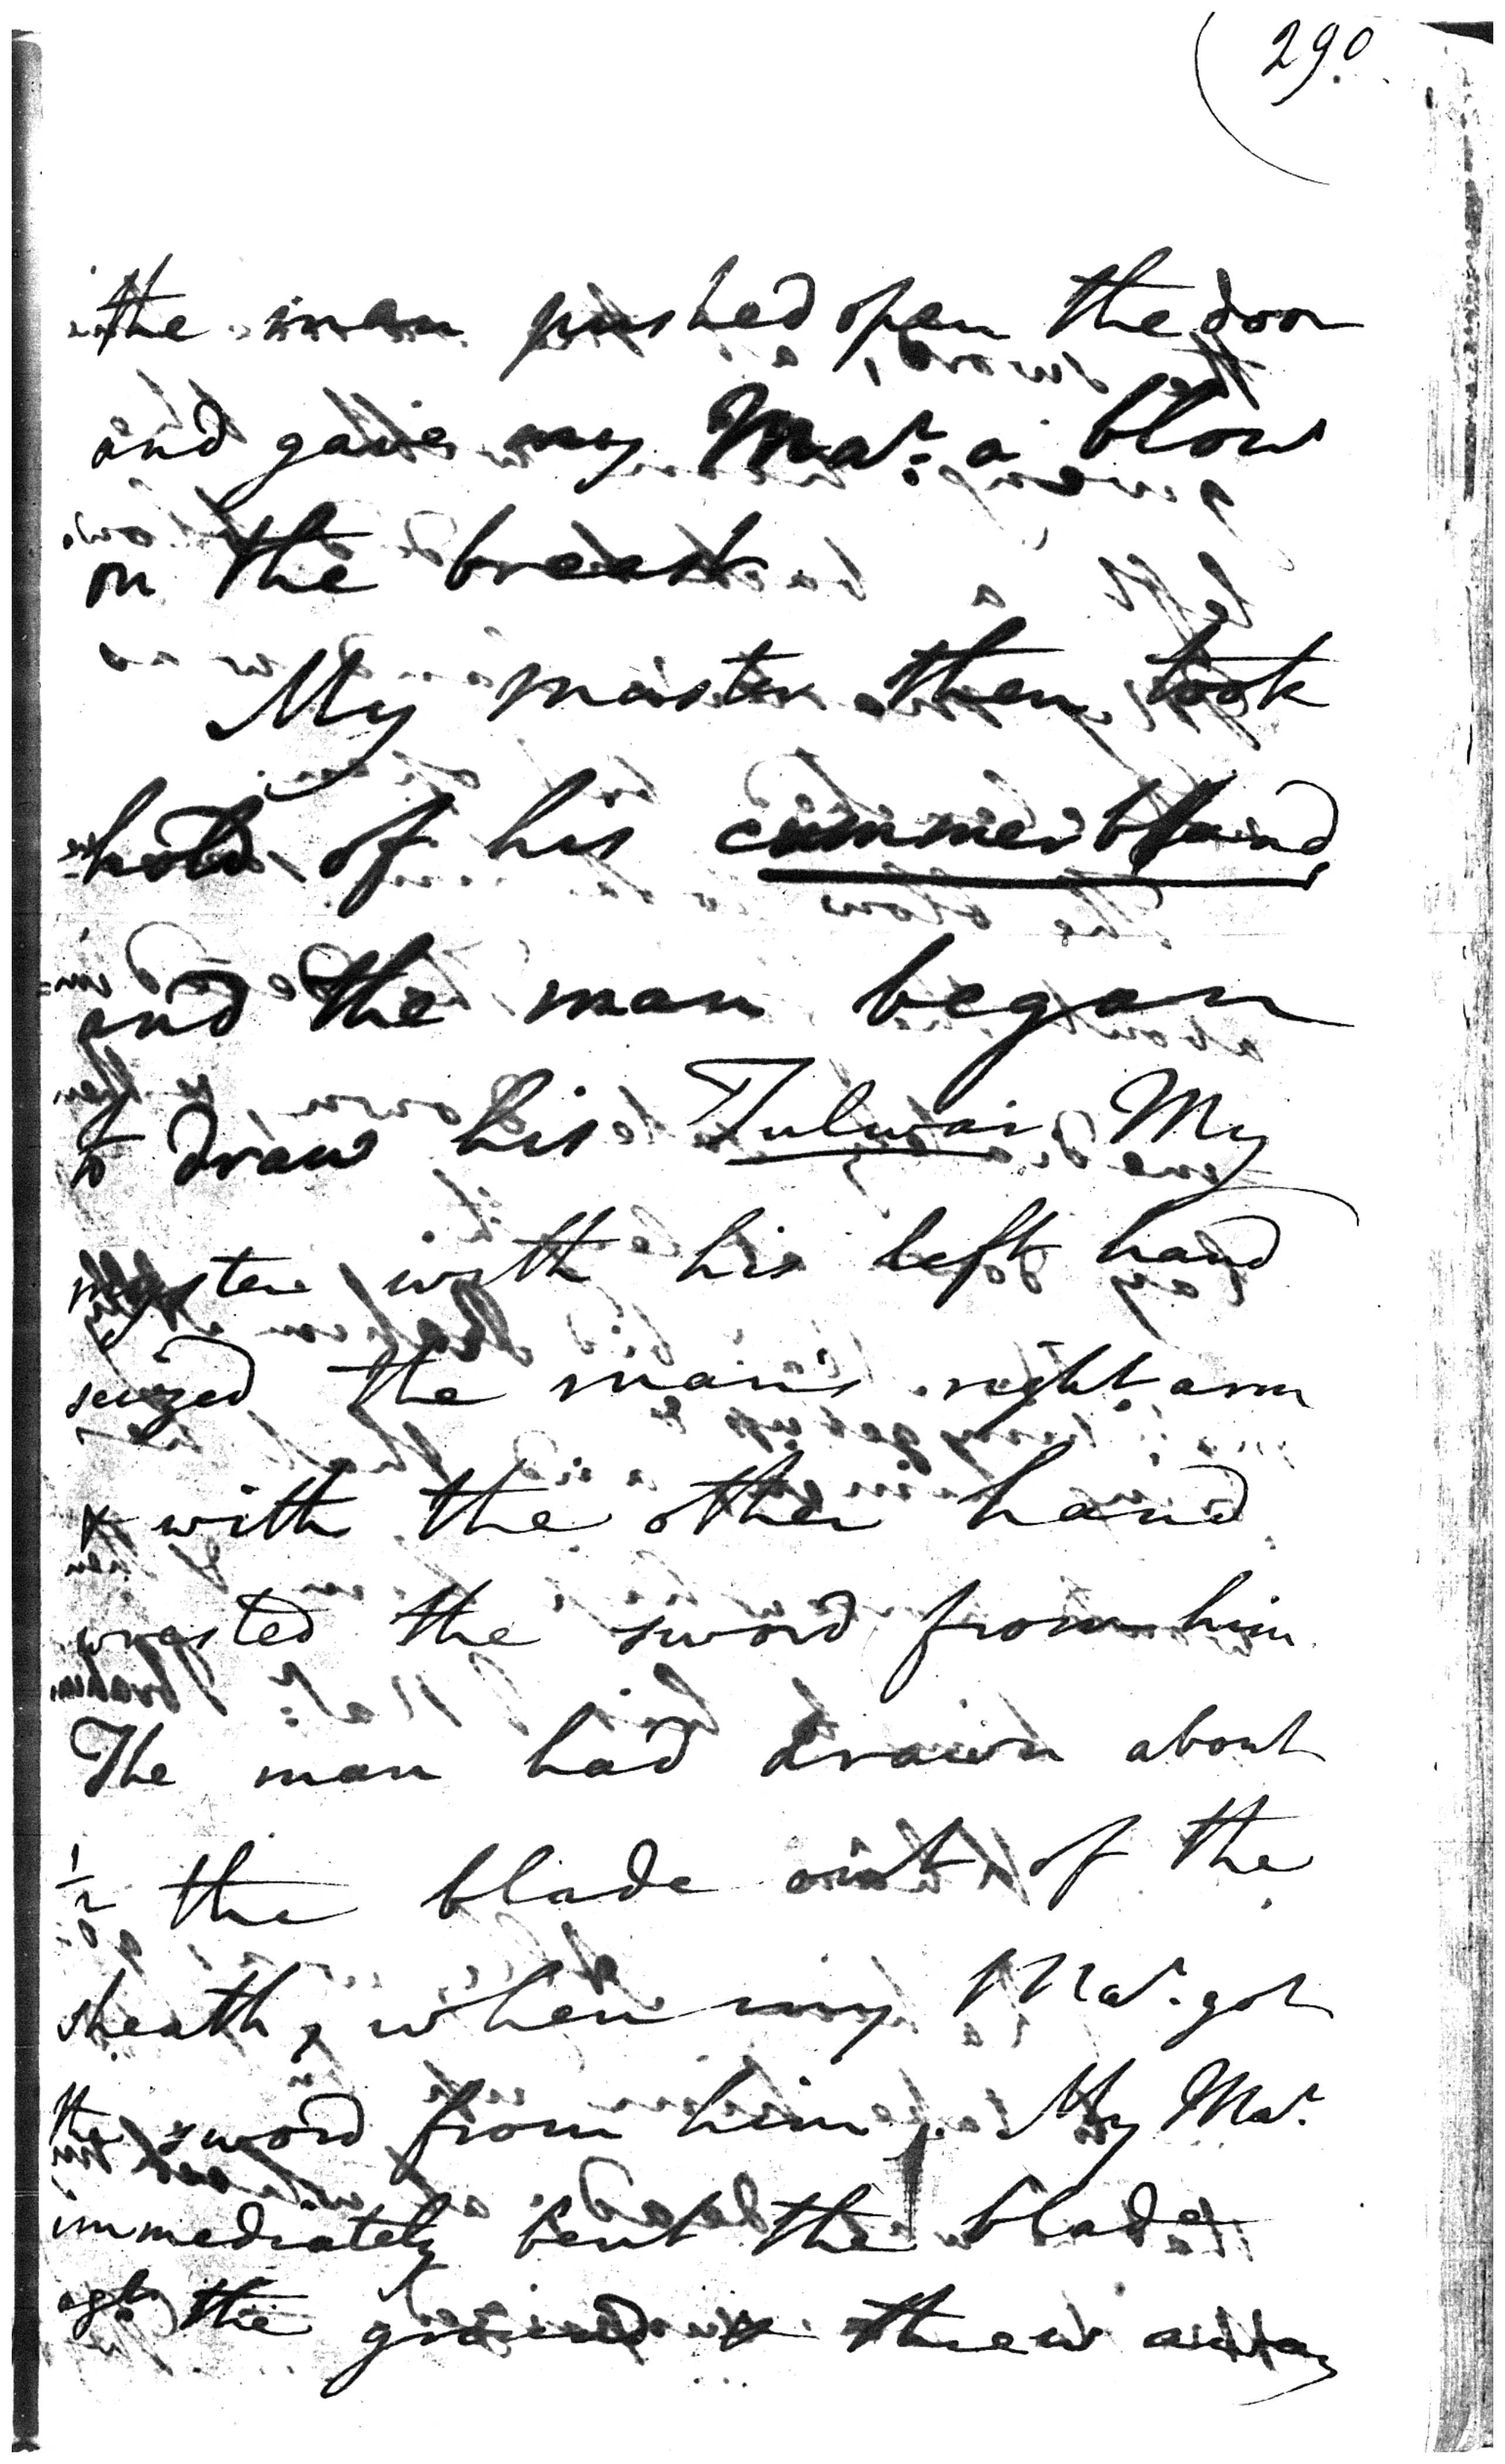 290
the man pushed open the door
and gave my Mar. a blow
on the breast
My master then took
hold of his cummerband
and the man began
to draw his Tulwar. My
master with his left hand
seized the man's right arm
& with the other hand
wrested the sword from him.
The man had drawn about
1/2 the blade out of the
sheath, when my Mar. got
the sword from him. My Mar.
immediately bent the blade
agt. the ground & threw away